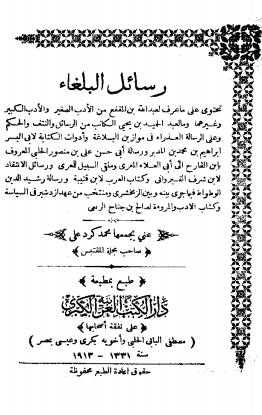 رسائل البلغاء
تحتوى على ما عرف لعبدالله بن المقفع من الأدب الصغير والأدب الكبير
وغيرهما وما لعبد الحميد بن يحيى الكاتب من الرسائل والنتف والحكم
وعلى الرسالة العذراء فى موازين البلاغة وأدوات الكتابة لأبى اليسر
ابراهيم بن محمد بن المدبر ورسالة أبى حسن على بن منصور الحلبى المعروف
بابن القارح الى أبى العلاء المعرى وملقى السبيل للمعرى ورسائل الانتقاد
لابن شرف القيروانى وكتاب العرب لابن قتيبة ورسالة رشيد الدين
الوطواط فيما جرى بينه وبين الزمخشرى ومنتخب من عهد ازدشير فى السياسة
وكتاب الادب والمروءة لصالح بن جناح الربعى
عنى بجمعها محمد كرد على
صاحب مجلة المقتبس
طبع بمطبعة
دار الكتب العربية الكبرى
على نفقة أصحابها
( مصطفى البابى الحلبى وأخويه بكرى وعيسى بمصر )
سنة ١٣٣١ - ١٩١٣
حقوق اعادة الطبع محفوظة